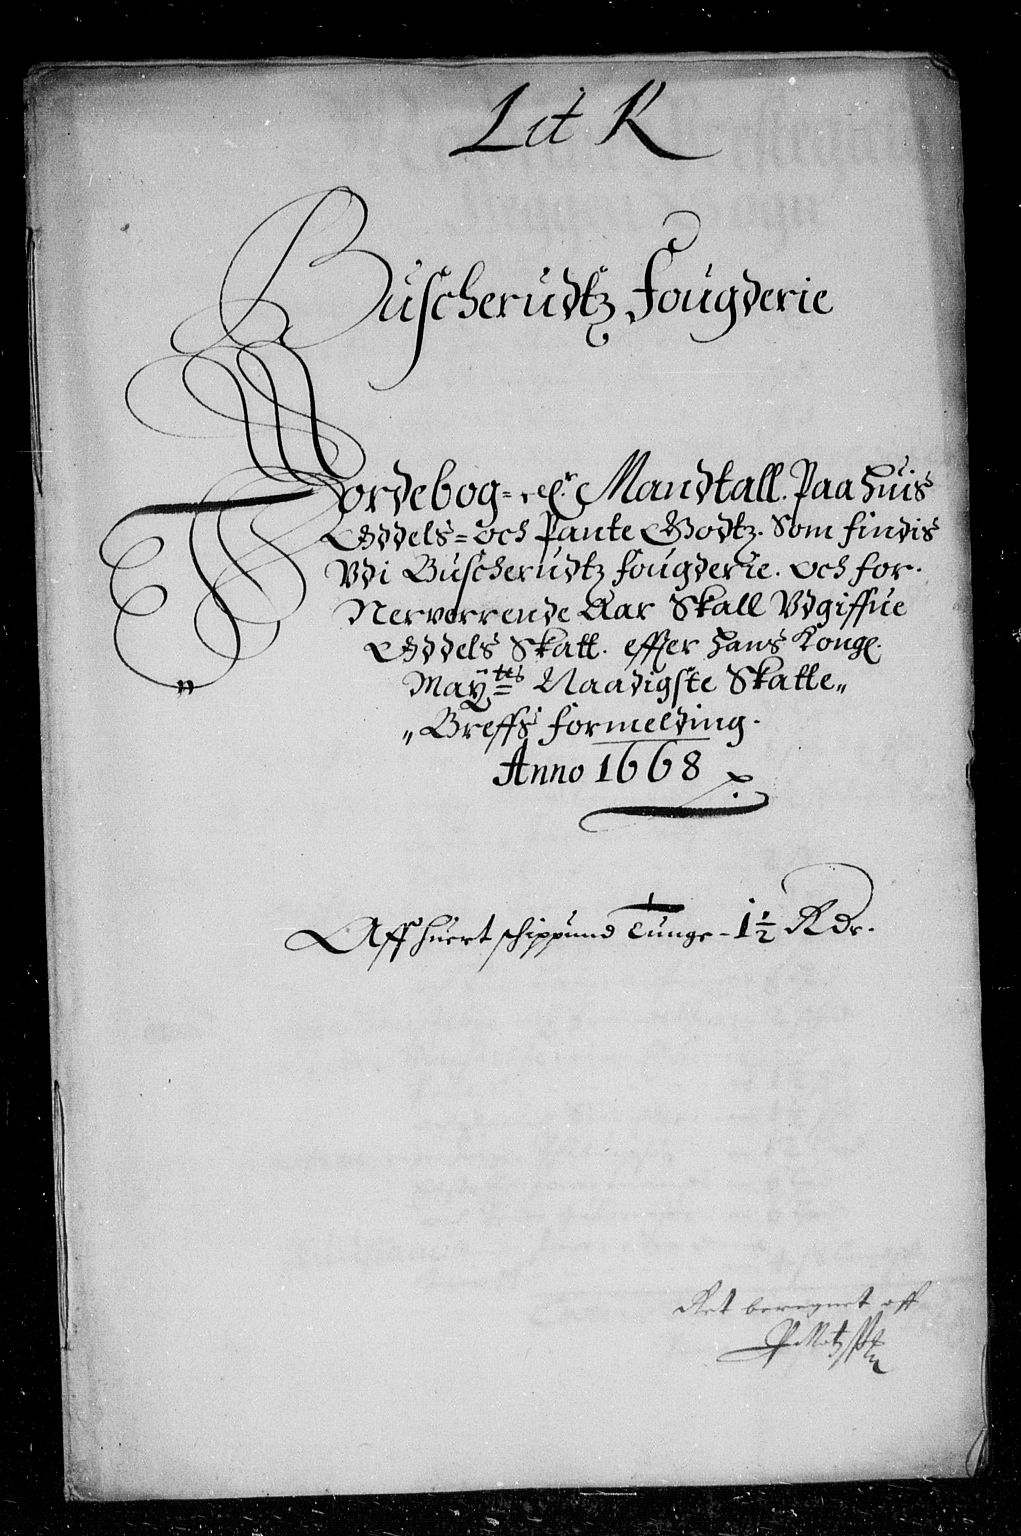 Lit K
Buscherudtz Fougderie
Jordebog = Mandtall. Paa huis
Oddels = och Pante Godtz. Som findis
Udi Buscherudtz fougderie. och for.
Nerverrende Aar Skall Udgiffue
Oddels Skatt. effter hans Kongl.
Mayttes Naadigste Skatte„
„Breffs formelding.
Anno 1668
Aff huert schippund Tunge - 1 1/2 Rdr.
Ret beregnet aff